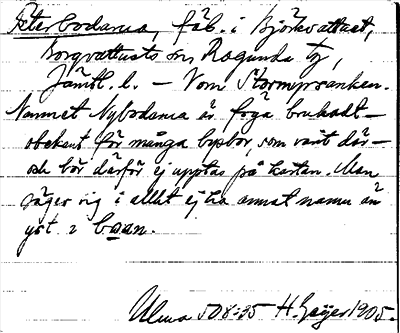 Österbodarna, fäb. i Björkvattnet,
Borgvattnets sn, Ragunda tg,
Jämtl. l. – Vom Stormyrvanken.
Namnet Nybodarna är föga brukadt –
obekant för många bybor, som varit där –
och bör därför ej upptas på kartan. Man
säger sig i allm ej ha annat namn än
yst. 2 baan.
Ulma 508:35 H. Geijer 1905.